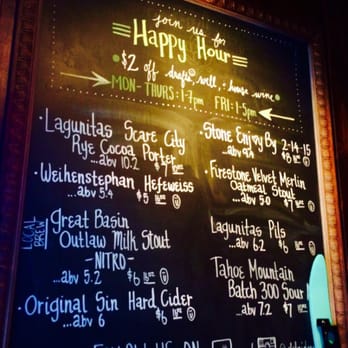 join us for
Happy Hour
$2 off drafts, well, + house wine
MON-THURS: 1-7pm FRI: 1-5pm
• Lagunitas Scare City
Rye Cocoa Porter
...abv 10.2 $7
• Weihenstephan Hefeweiss
...abv 5.4 $5
LOCAL BREW
Great Basin
Outlaw Milk Stout
-NITRO-
...abv 5.2 $6
• Original Sin Hard Cider
...abv 6 $6
• Stone Enjoy By 2-14-15
...abv 9.4 $6
• Firestone Velvet Merlin
Oatmeal Stout
...abv 5.0 $7
Lagunitas Pils
...abv 6.2 $6
Tahoe Mountain
Batch 300 Sour
...abv 7.2 $7